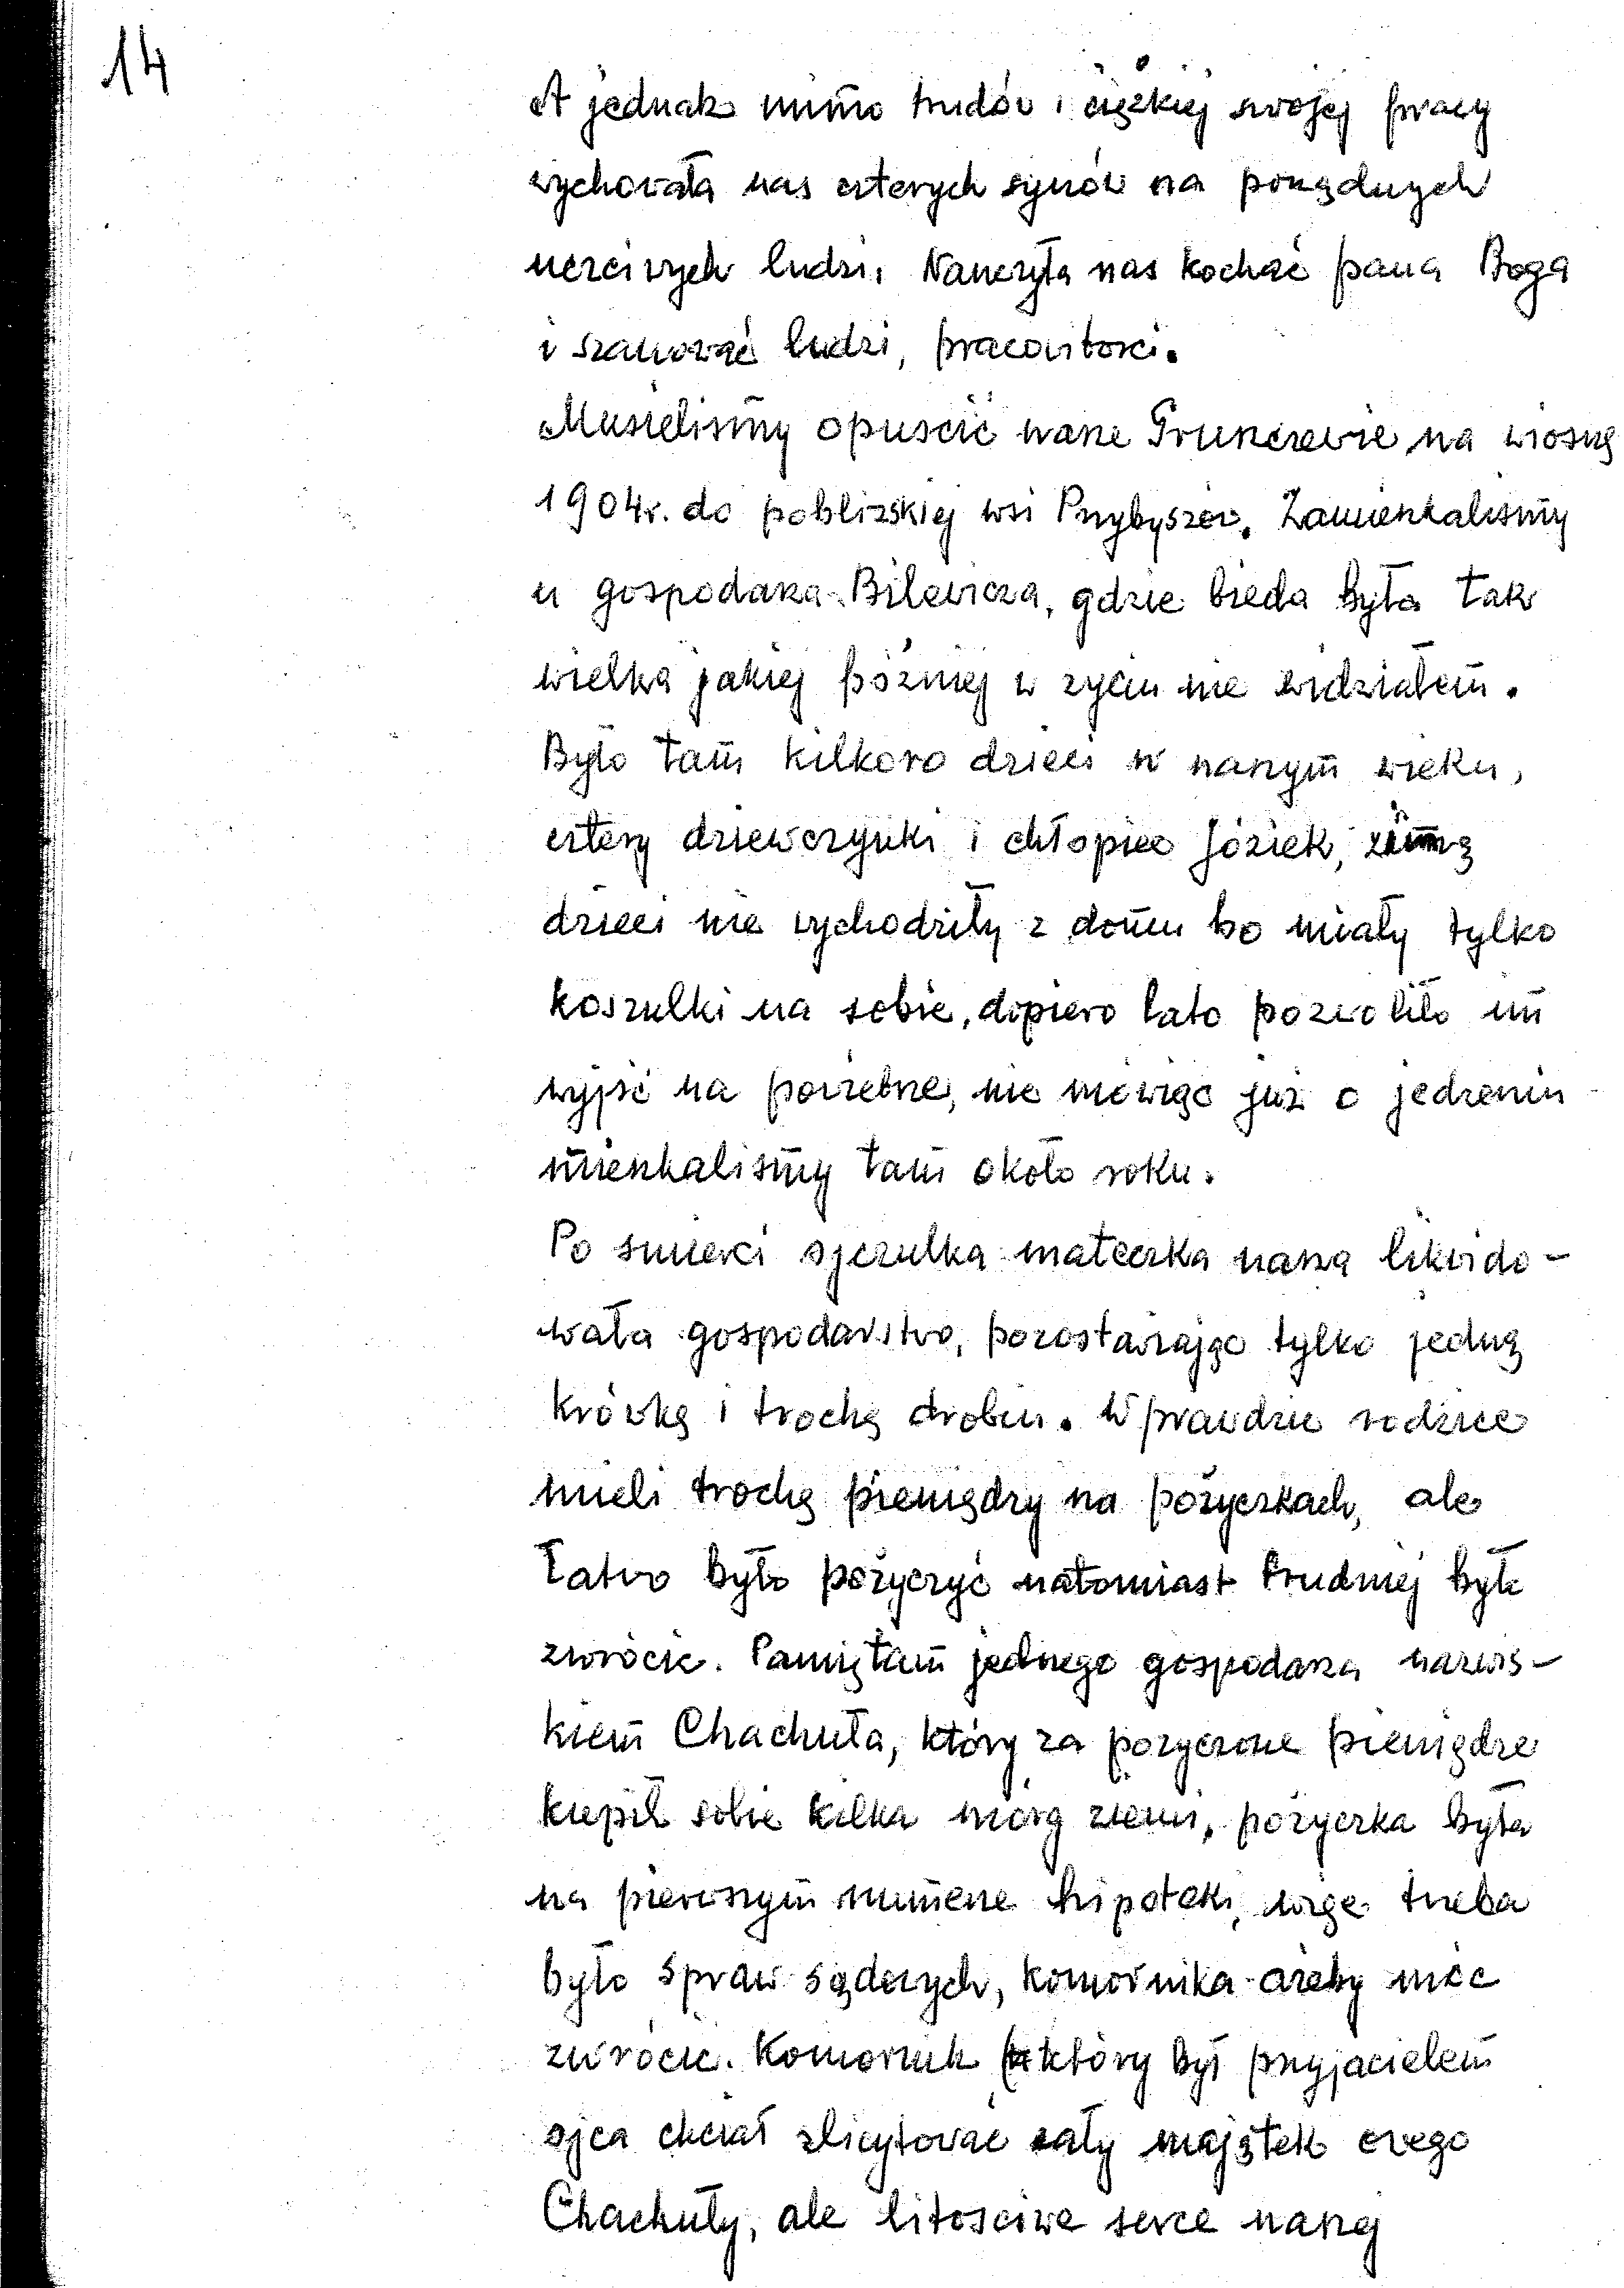 14
A jednak mimo trudów i ciężkiej swojej pracy
wychowała nas czterych synów na porządnych
uczciwych ludzi. Nauczyła nas kochać pana Boga
i szanować ludzi, pracowitosci.
Musielismy opuscić nasze na wiosnę
1904r. do poblizskiej wsi Przybyszew. Zamieszkalismy
u gospodarza Bilewicza, gdzie bieda była tak
wielka jakiej pózniej w zyciu nie widziałem.
Było tam kilkoro dzieci w naszym wieku,
cztery dziewczynki i chłopiec Józiek, zimą
dzieci nie wychodziły z domu bo miały tylko
koszulki na sobie, dopiero lato pozwoliło im
wyjsć na powietrze, nie mówiąc juz o jedzeniu
mieszkalismy tam około roku.
Po smierci ojczulka mateczka nasza likwido-
wała gospodarstwo, pozostawiając tylko jedną
krówkę i trochę drobiu. Wprawdzie rodzice
mieli trochę pieniędzy na pożyczkach, ale
łatwo było pożyczyć natomiast trudniej było
zwrócic. Pamiętam jednego gospodarza nazwis-
kiem Chachuła, który za pozyczone pieniądze
kupił sobie kilka mórg ziemi, pożyczka była
na pierwszym numerze hipoteki, więc trzeba
było spraw sądowych, komornika ażeby móc
zwrócic. Komornik który był przyjacielem
ojca chciał zlicytować cały majątek owego
Chachuły, ale litosciwe serce naszej